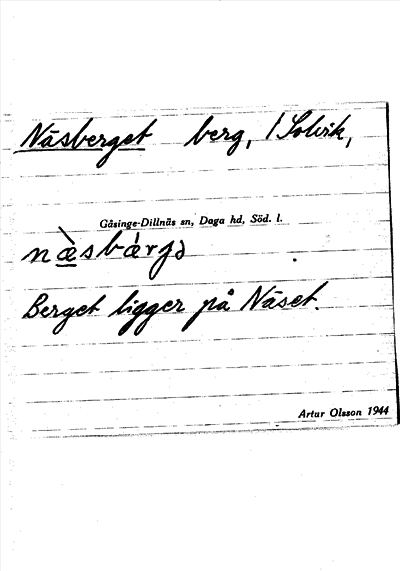 Näsberget berg, / Solvik,
Gåsinge-Dillnäs sn, Daga hd, Söd. l.
næ̀sbærjə
Berget ligger på Näset.
Artur Olsson 1944